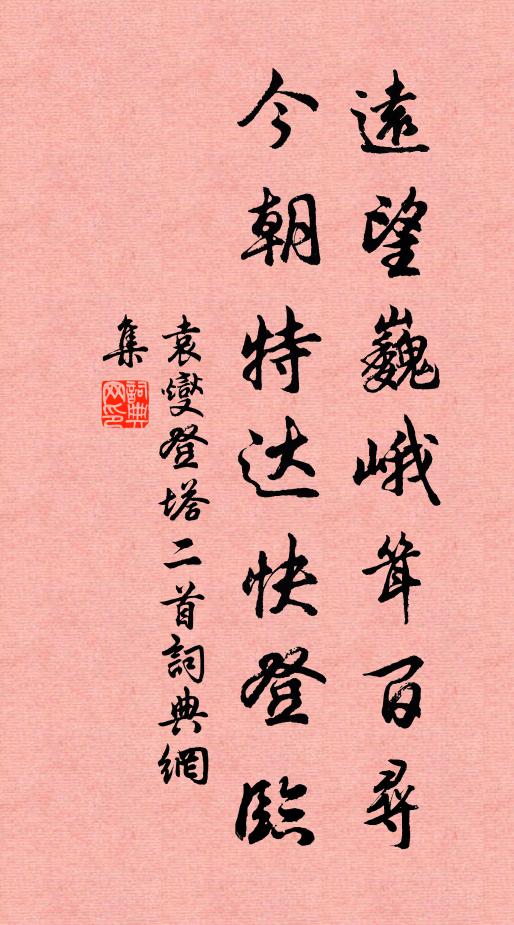 遠望巍峨耸百尋
今朝特达快登臨
袁燮登塔二首詞典網
集
詞典網印